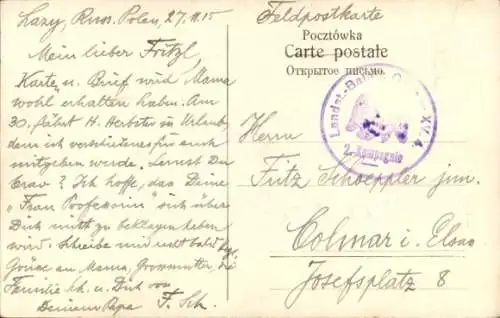 Lazy, Russ. Polen, 27.11.15
Mein lieber Fritzl,
Karte u. Brief wird Mama
wohl erhalten haben. Am
30. fährt H. Herbster in Urlaub,
dem ich verschiedenes für euch
mitgeben werde. Lernst Du
brav? Ich hoffe, das Deine
"Frau Professorin" sich über
Dich nicht zu beklagen haben
wird. Schreibe mir recht bald
Grüsse an Mama, Grossmutter, die
Familie u. Dich von
Deinem Papa F. Sch.
Feldpostkarte
Pocztówka
Carte postale
Открытое письмо.
Landst.-XV.4.
2. Kompagnie
Herrn
Fritz Schoeppler jun.
Colmar i. Elsass
Josefsplatz 8